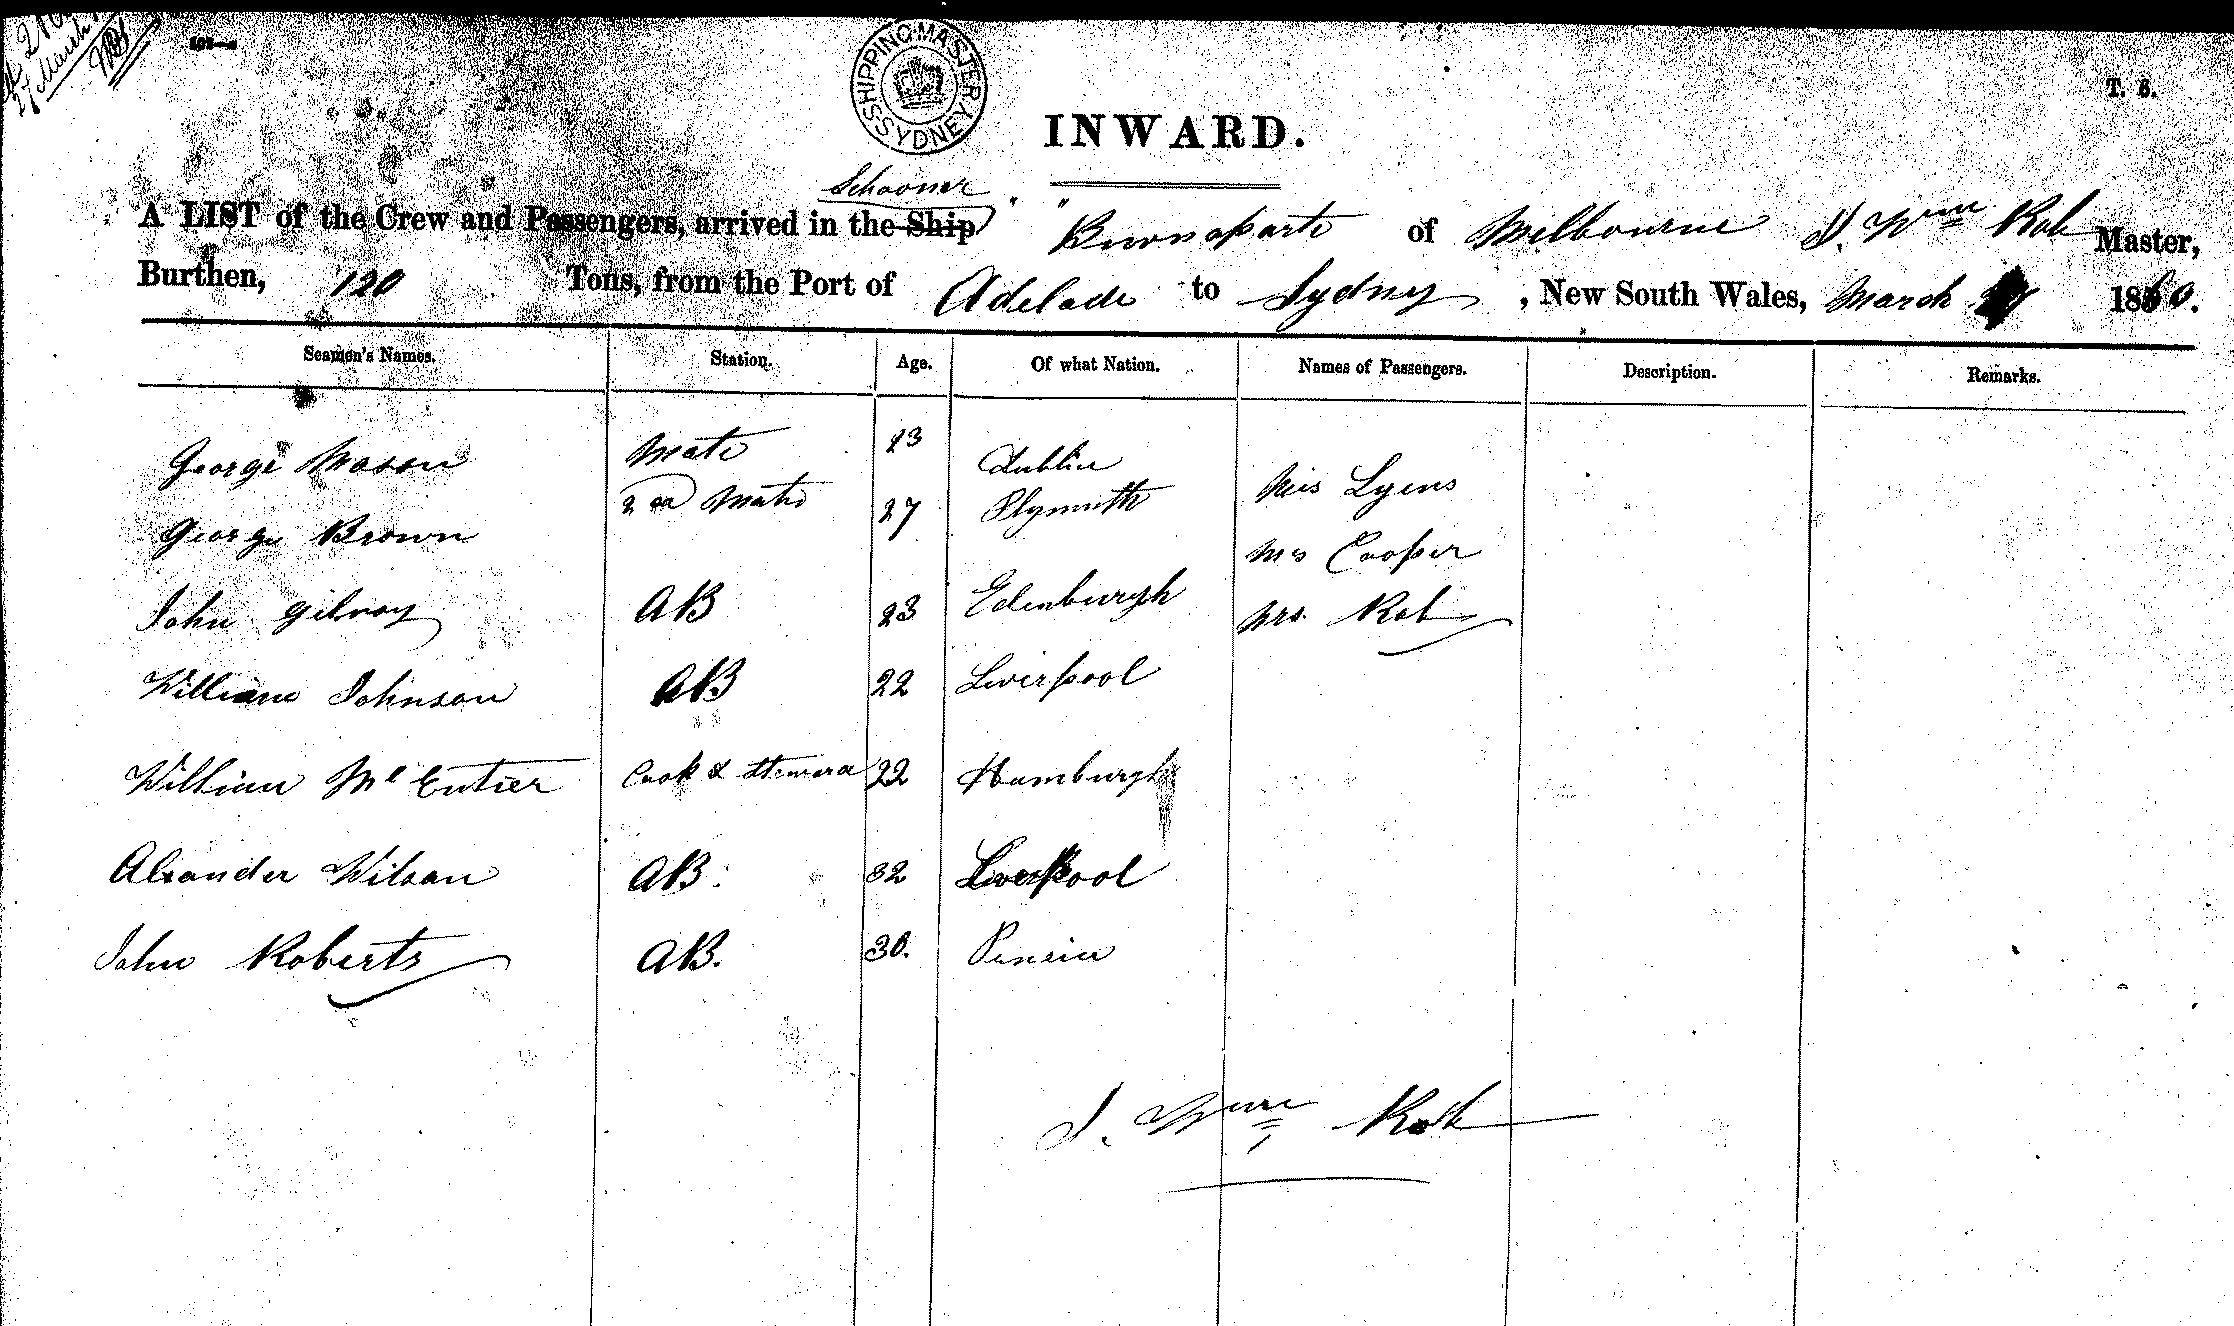 27 March
SHIPPING MASTER SYDNEY
T. S.
INWARD.
Schooner
A LIST of the Crew and Passengers, arrived in the Ship " Buonaparte of Melbourne J. Wm Rob Master,
Burthen, 120 Tons, from the Port of Adelade to Sydney , New South Wales, March 1860.
Seamen's Names. Station. Age. Of what Nation. Names of Passengers. Description. Remarks.
George Mason Mate 23 Dublin Mis Lyens
George Brown 2nd Mate 27 Plymuth Mrs Cooper
John Gilroy AB 23 Edenburgh Mrs. Rob
William Johnson AB 22 Liverpool
William Mc Entier Cook & Steward 22 Hamburgh
Alxander Wilson AB. 32 Liverpool
John Roberts AB. 30.
J. Wm Rob